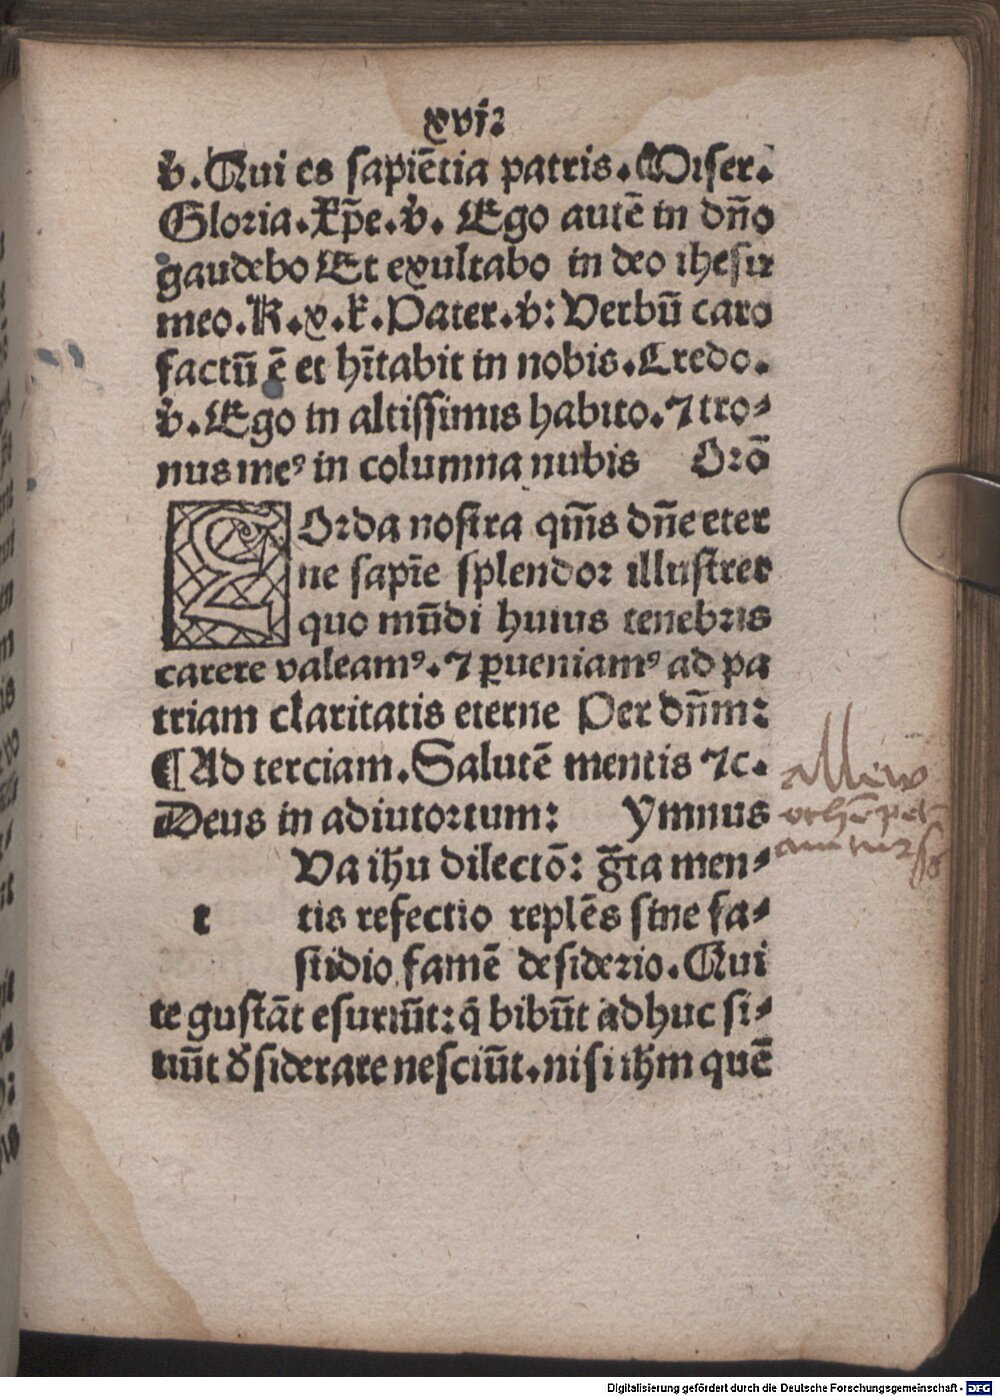 xvi:
v̇. Qui es sapiētia patris. Miser.
Gloria. xp̄e. v̇. Ego autē in dn̄o
gaudebo Et exultabo in deo ihesu
meo. K. x. k̄. Pater. v̇: Verbū caro
factū ē et hītabit in nobis. Credo.
v̇. Ego in altissimis habito. ⁊ tro⸗
nus meꝰ in columna nubis Orō
COrda nostra qm̄s dn̄e eter
ne sapīe splendor illustret
quo mūdi huius tenebris
carere valeamꝰ. ⁊ ꝑueniamꝰ ad pa
triam claritatis eterne Per dn̄m:
¶ Ad terciam. Salutē mentis ⁊c.
Deus in adiutorium: Ymnus
Va ihu dilectō: gr̄a men⸗
t tis refectio replēs sine fa⸗
stidio famē desiderio. Qui
te gustāt esuriūt: q̄ bibūt adhuc si⸗
tiūt d̓siderare nesciūt. nisi ihm quē
Digitalisierung gefördert durch die Deutsche Forschungsgemeinschaft - DFG